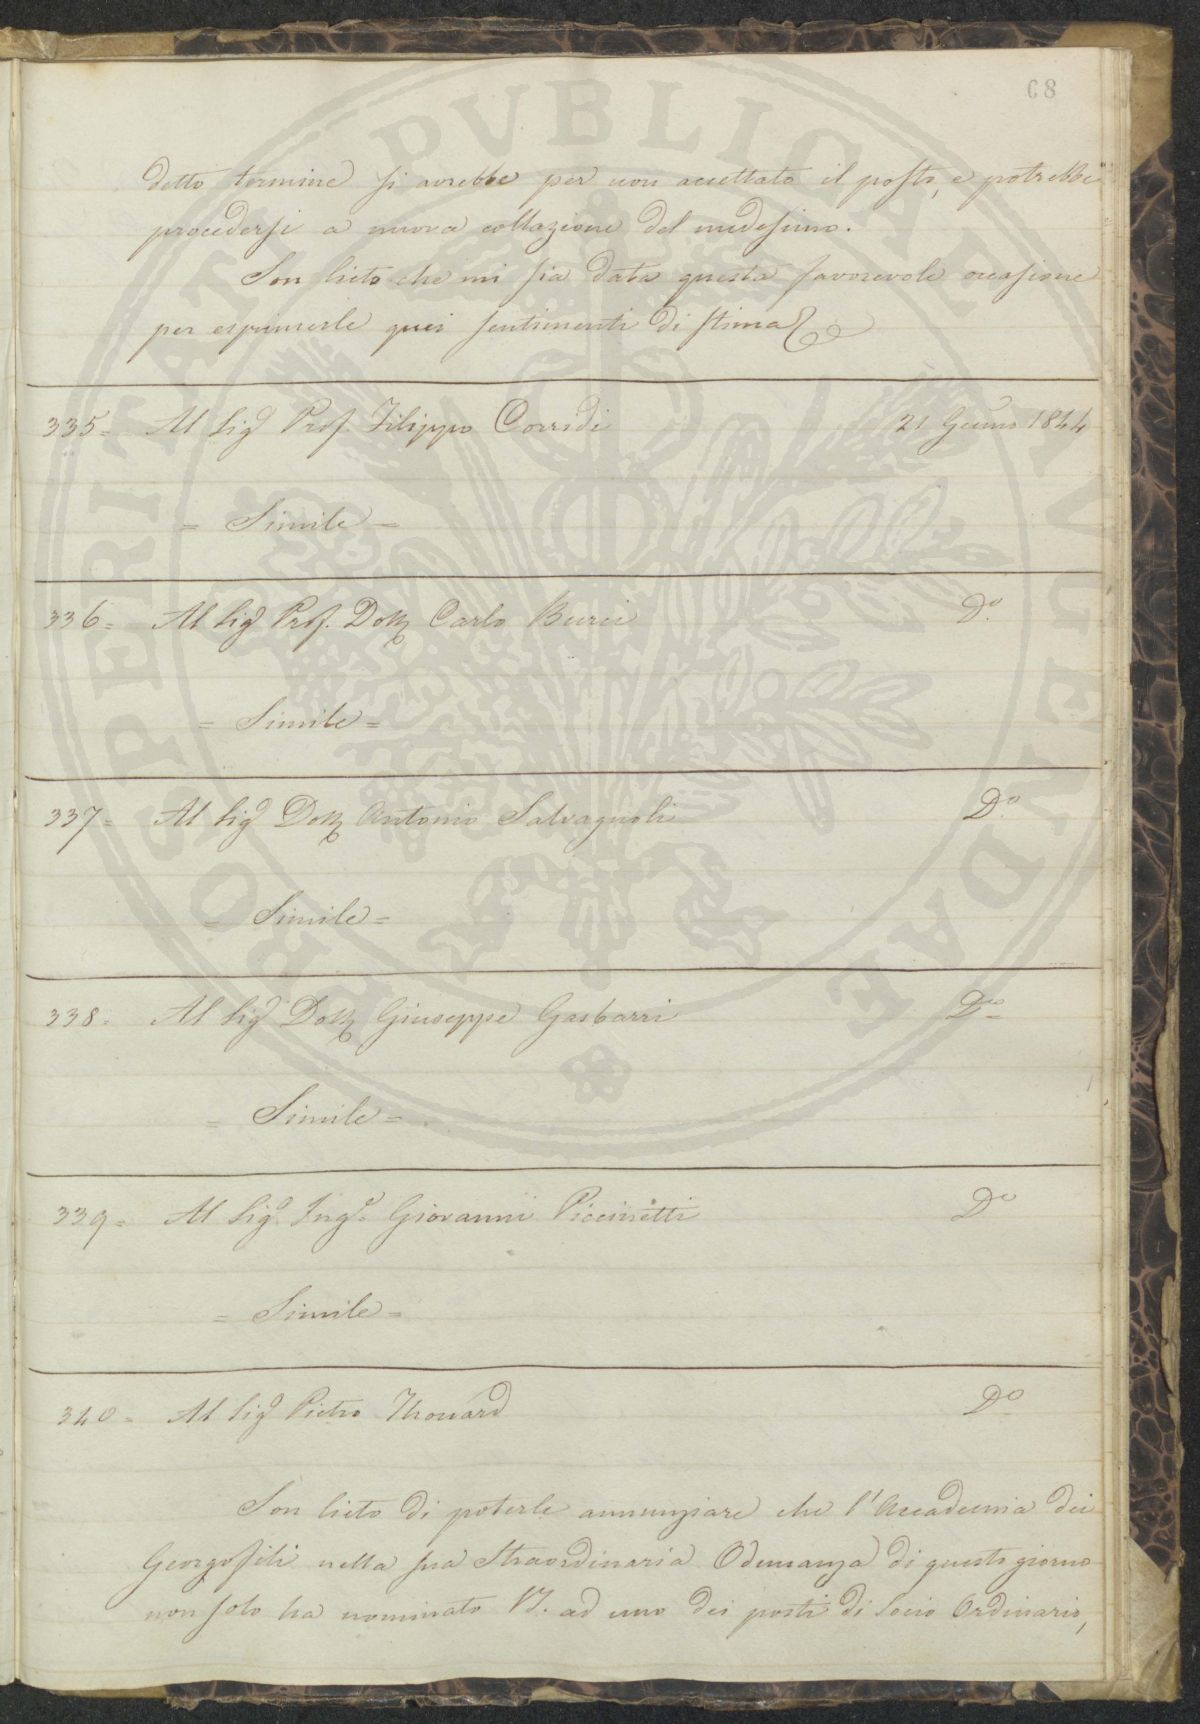 68
detto termine si avrebbe per non accettato il posto, e potrebbe
procedersi a nuova collazione del medesimo.
Son lieto che mi sia data questa favorevole occasione
per esprimerle quei sentimenti di stima
335= Al Sigr Prof. Filippo Corridi 21 Giugno 1844
= Simile =
336= Al Sigr Prof. Dott Carlo Burci Do.
= Simile =
337= Al Sigr Dott Antonio Salvagnoli Do.
= Simile =
338= Al Sigr Dott Giuseppe Gasbarri Do=
= Simile =
339= Al Sigr Inge= Giovanni Piccinetti Do
= Simile =
340= Al Sigr Pietro Thouard Do
Son lieto di poterle annunziare che l'Accademia dei
Georgofili nella sua Straordinaria Adunanza di questo giorno
non solo ha nominato VS. ad uno dei posti di Socio Ordinario,
PROSPERITATI PVBLICAE AVGENDAE